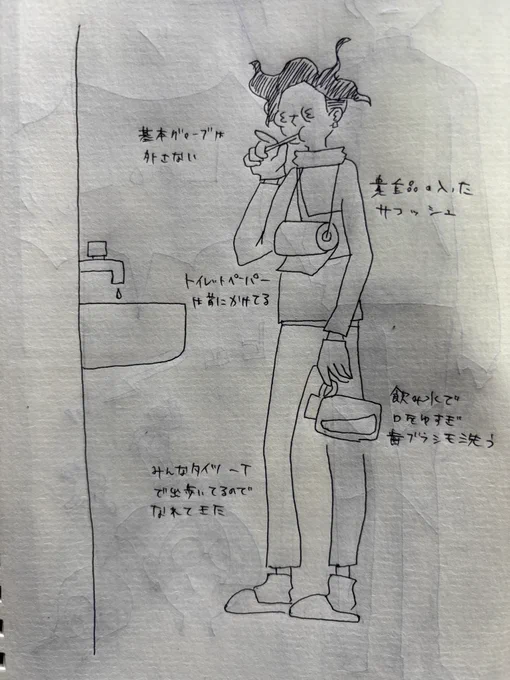 基本グローブは
外さない
貴重品の入った
サコッシュ
トイレットペーパー
は首にかけてる
飲み水で
口をゆすぎ
歯ブラシモ洗う
みんなタイツ一丁
で出歩いてるので
なれてきた